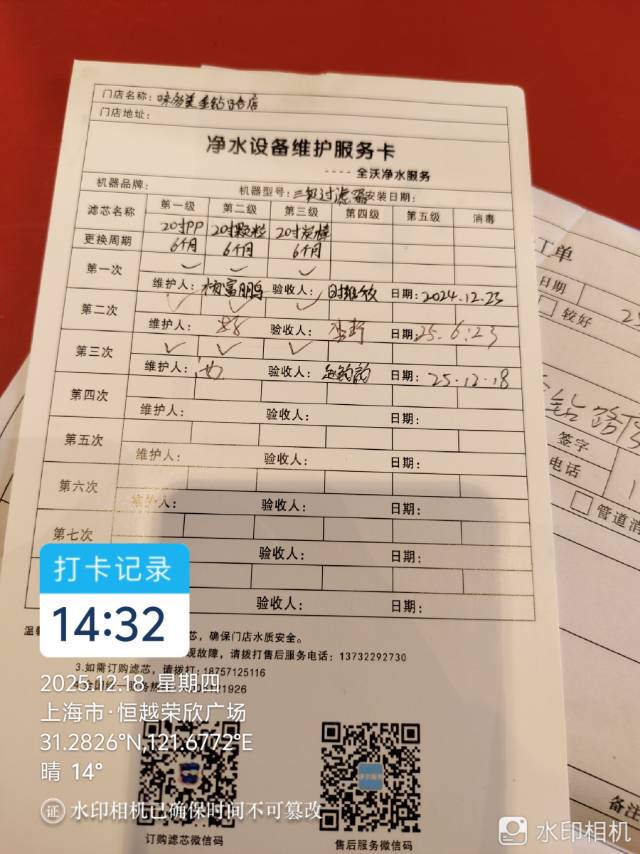 门店名称：
门店地址：
净水设备维护服务卡
---- 全沃净水服务
机器品牌： 机器型号：三级过滤器 安装日期：
滤芯名称 第一级 第二级 第三级 第四级 第五级 消毒
20寸PP 20寸颗粒 20寸炭棒
更换周期 6个月 6个月 6个月
第一次 ✓ ✓ ✓
维护人：杨富鹏 验收人： 日期：2024.12.23
第二次 ✓ ✓ ✓
维护人： 验收人： 日期：25.6.23
第三次 ✓ ✓ ✓
维护人： 验收人： 日期：25.12.18
第四次
维护人： 验收人： 日期：
第五次
维护人： 验收人： 日期：
第六次
维护人： 验收人： 日期：
第七次
验收人： 日期：
验收人： 日期：
芯，确保门店水质安全。
现故障，请拨打售后服务电话：13732292730
3.如需订购滤芯，请拨打：18757125116
订购滤芯微信码
售后服务微信码
工单
日期 25
较好
钻路
签字
电话 1
管道消
备注
打卡记录
14:32
2025.12.18 星期四
上海市·恒越荣欣广场
31.2826°N,121.6772°E
晴 14°
证 水印相机已确保时间不可篡改
水印相机